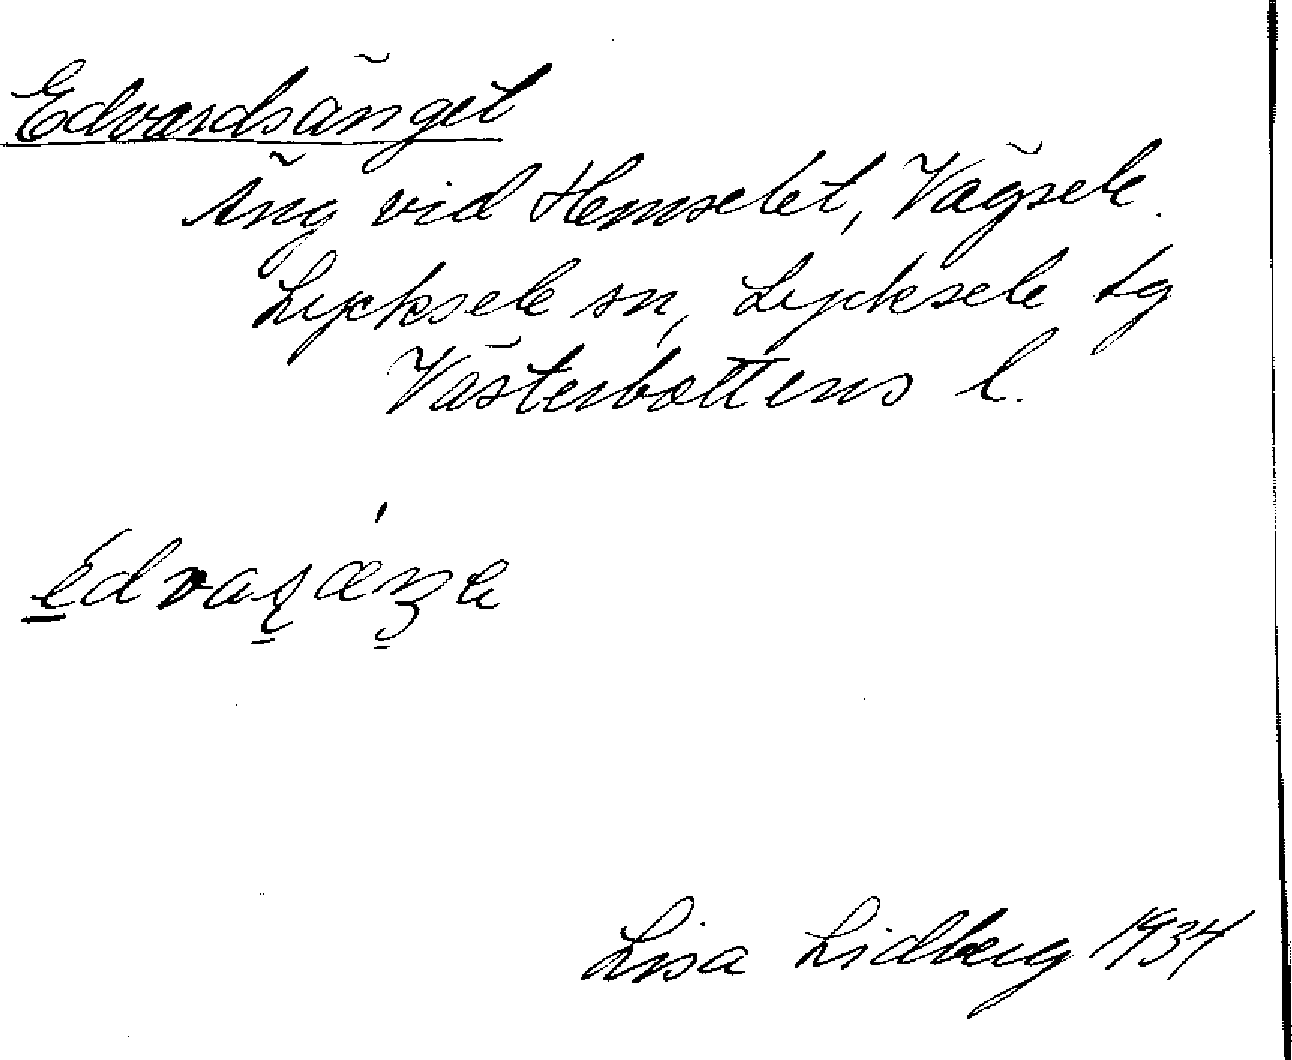 Edvardsänget
Äng vid Hemselet, Vägsele.
Lycksele sn, Lycksele tg
Västerbottens l.
Lisa Lidberg 1934